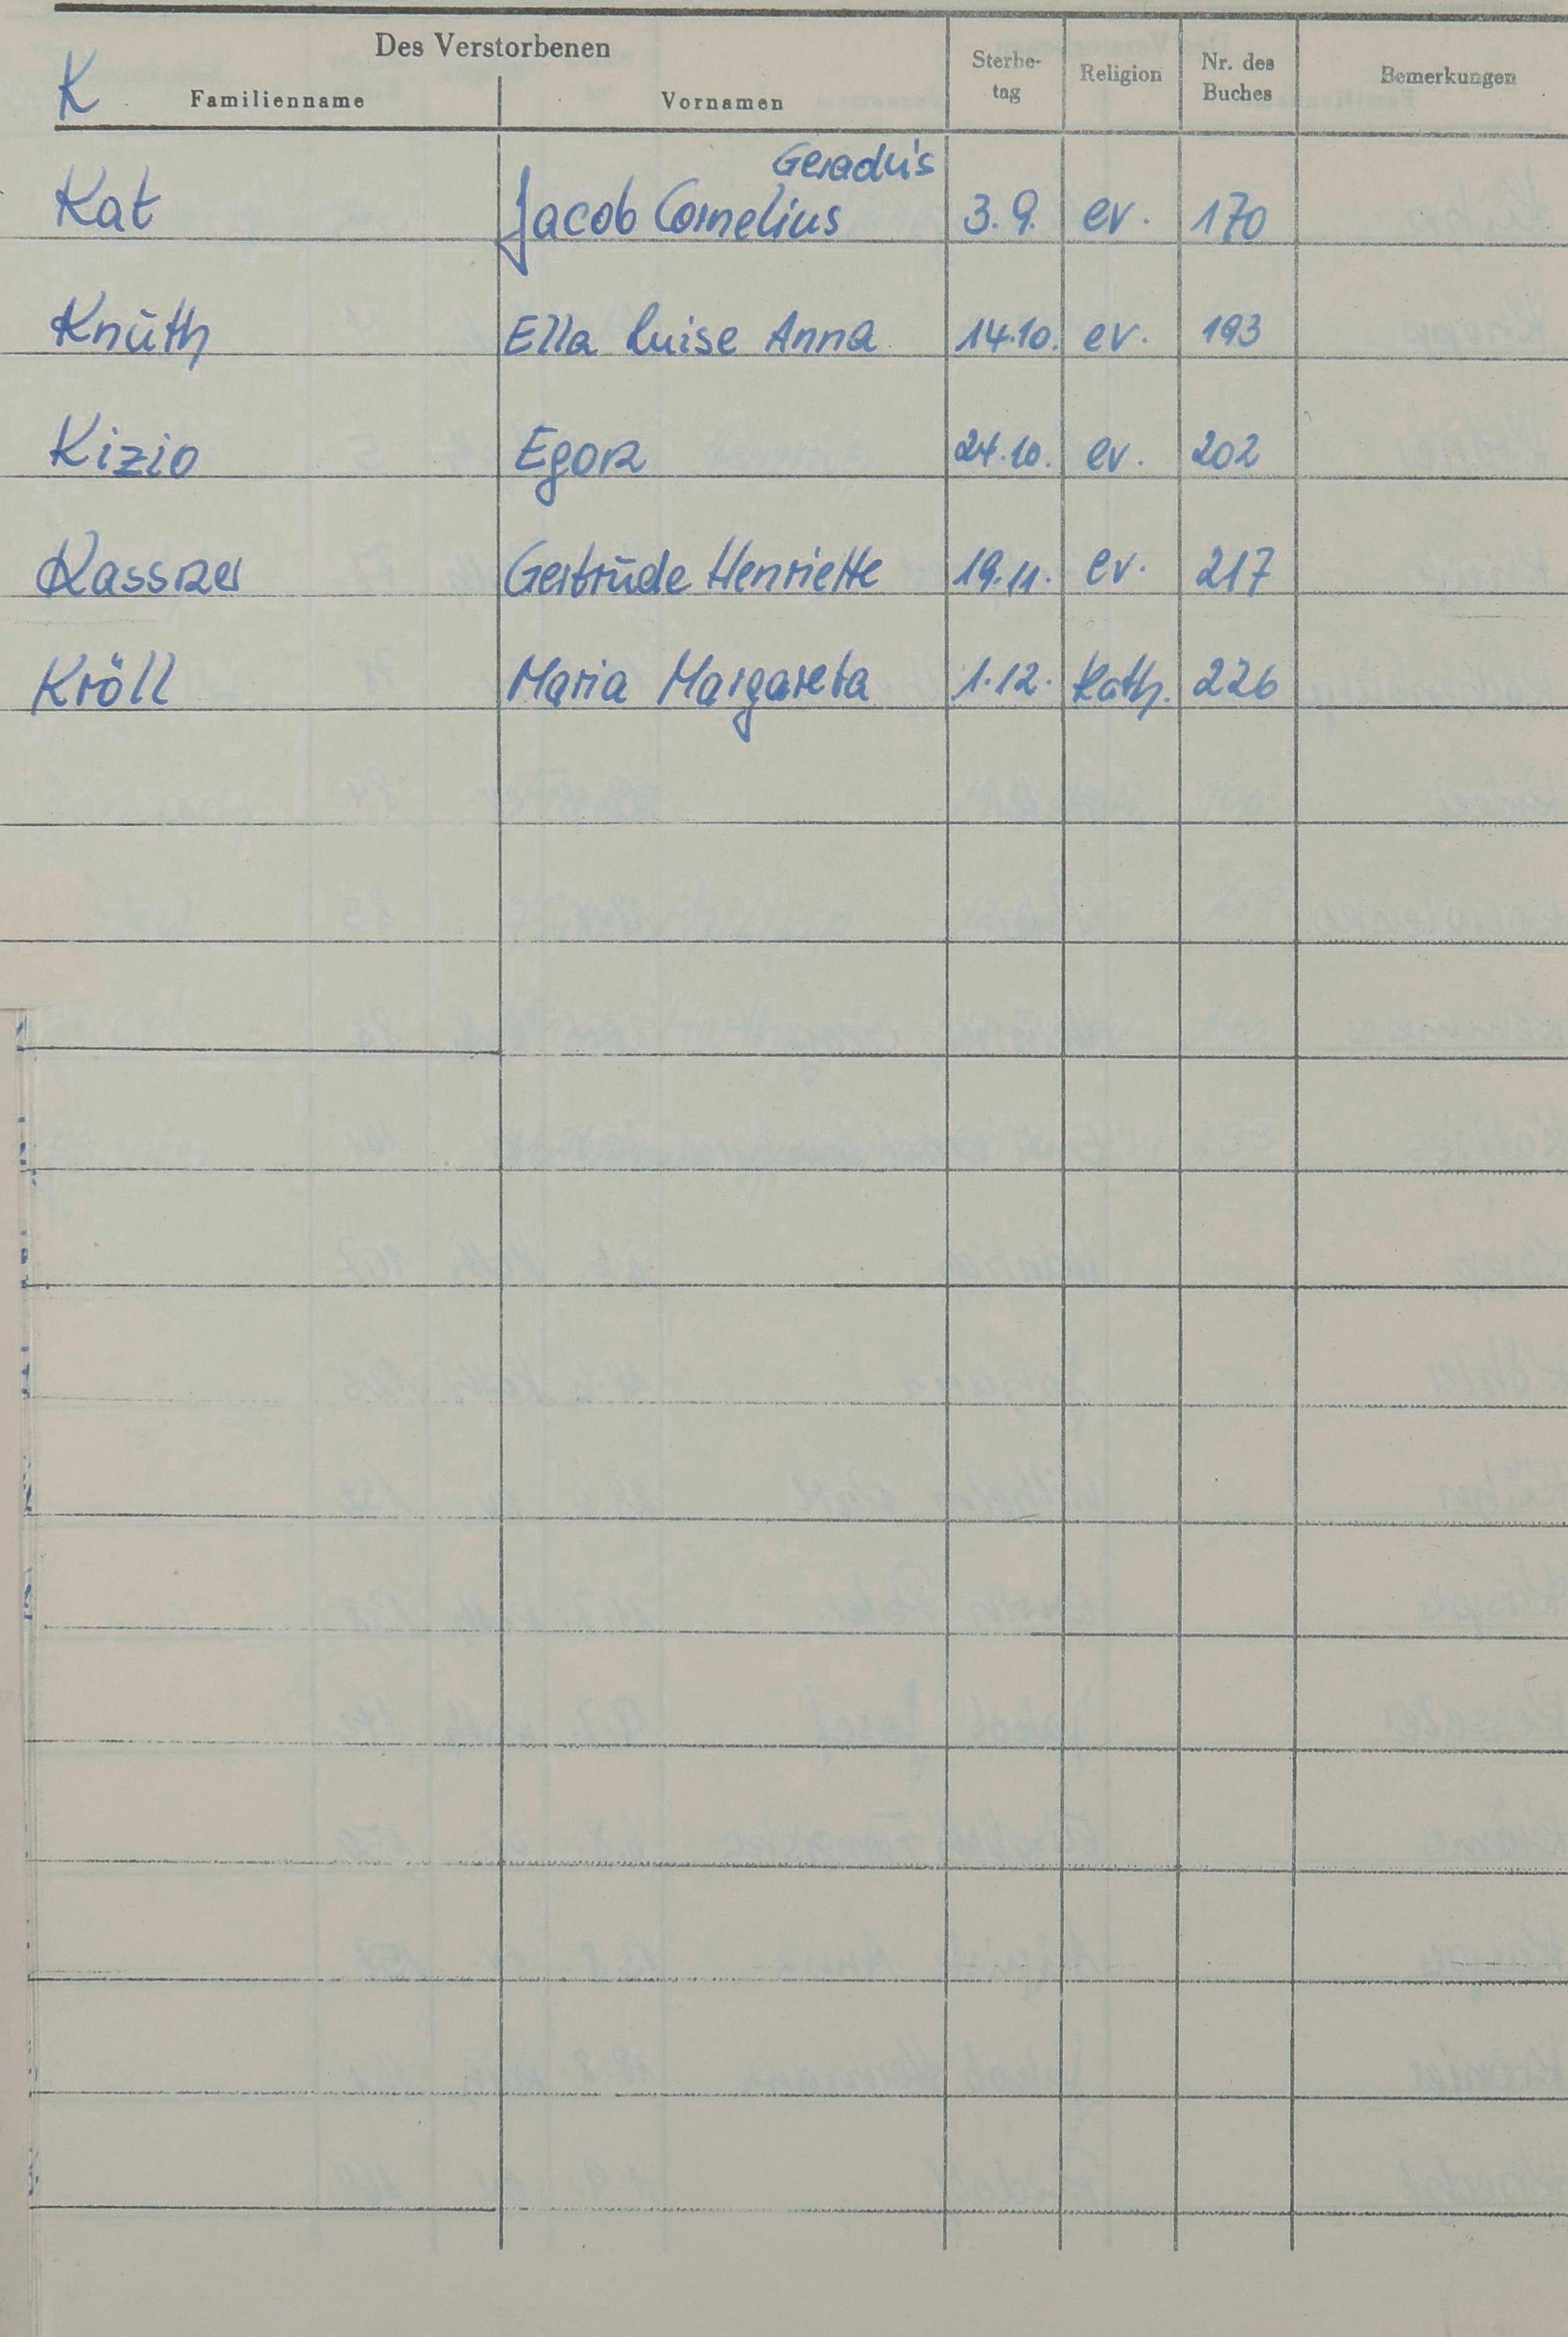 Des Verstorbenen
K Familienname Vornamen Sterbe-tag Religion Nr. des Buches Bemerkungen
Geradus
Kat Jacob Cornelius 3.9. ev. 170
Knuth Ella Luise Anna 14.10. ev. 193
Kizio Egon 24.10. ev. 202
Gertrude Henriette 19.11. ev. 217
Kröll Maria Margareta 1.12. Kath. 226